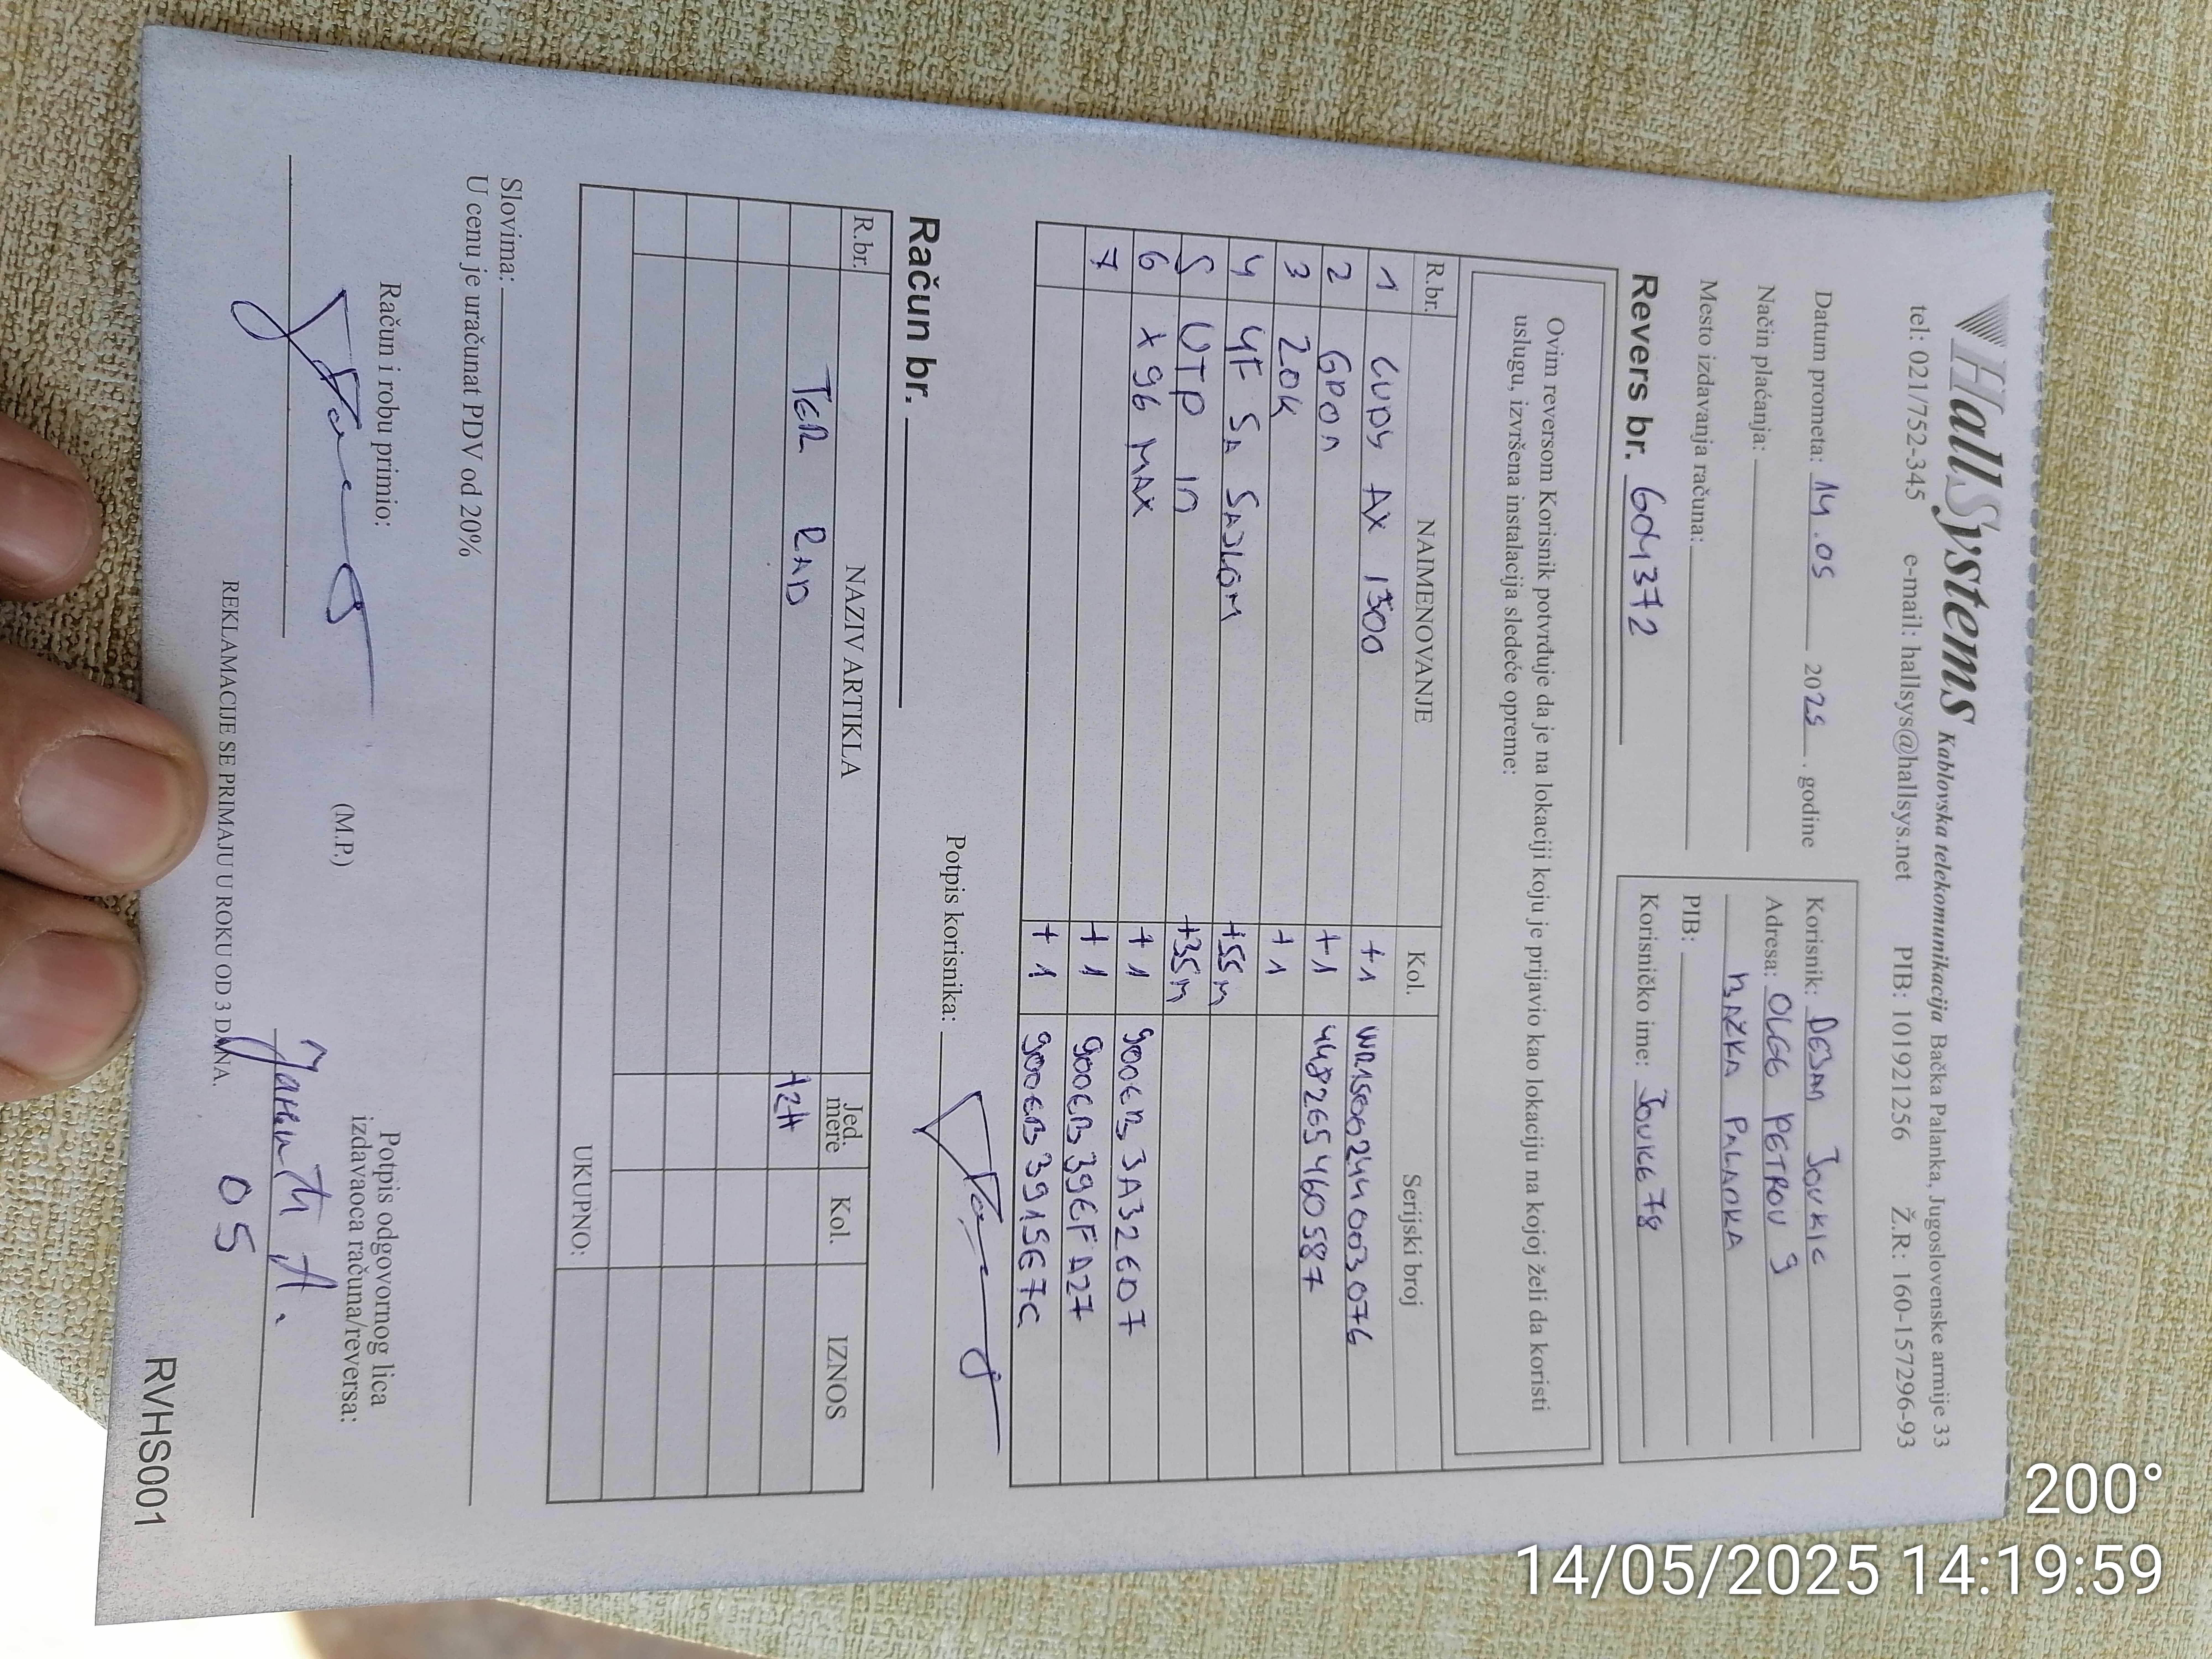 HallSystems Kablovska telekomunikacija Bačka Palanka, Jugoslovenske armije 33
tel: 021/752-345 e-mail: hallsys@hallsys.net PIB: 101921256 Ž.R: 160-157296-93
Datum prometa: 14.05 2025. godine
Način plaćanja:
Mesto izdavanja računa:
Korisnik: DEJAN JOVKIC
Adresa: OLGE PETROV 9
BAŽKA PALANKA
PIB:
Korisničko ime: JOVKE78
Revers br. 604372
Ovim reversom Korisnik potvrđuje da je na lokaciji koju je prijavio kao lokaciju na kojoj želi da koristi
uslugu, izvršena instalacija sledeće opreme:
R.br. NAIMENOVANJE Kol. Serijski broj
1 CUDY AX 1500 +1 WR1500244003076
2 GPON +1 448265460587
3 ZOK +1
4 4F SA SAJLOM +55M
5 UTP IN +35M
6 X96 MAX +1 900EB3A32607
7 +1 900EB39EFA27
+1 900EB3915E7C
Potpis korisnika:
Račun br.
R.br. NAZIV ARTIKLA Jed. mere Kol. IZNOS
TER RAD +2H
UKUPNO:
Slovima:
U cenu je uračunat PDV od 20%
Račun i robu primio:
(M.P.)
Potpis odgovornog lica
izdavaoca računa/reversa:
REKLAMACIJE SE PRIMAJU U ROKU OD 3 DANA.
05
RVHS001
200°
14/05/2025 14:19:59